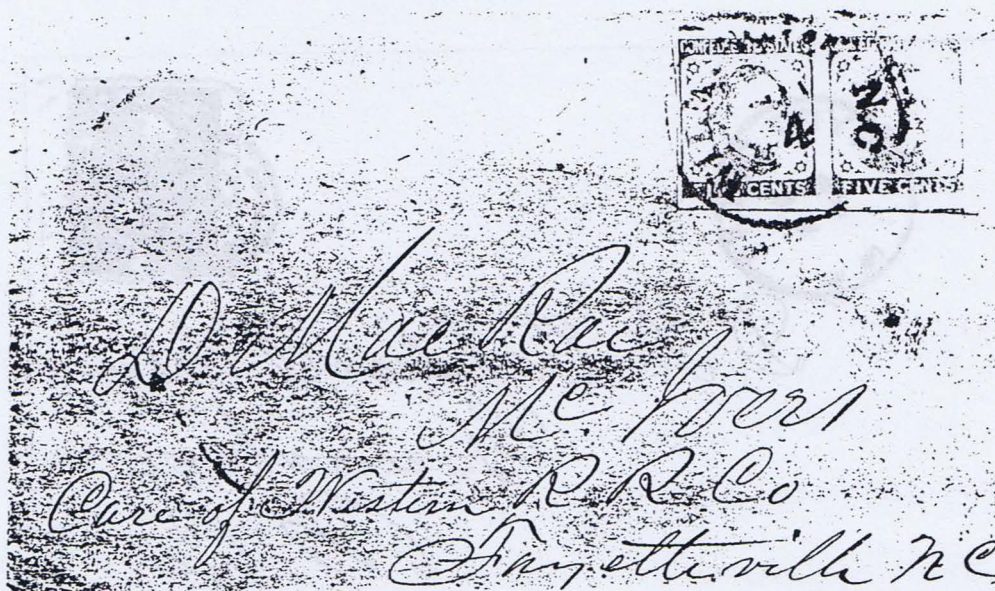 CONFEDERATE STATES
CENTS FIVE CENTS
N.C
D MacRae
Mc. Ivers
Care of Western R R Co
Fayetteville N C